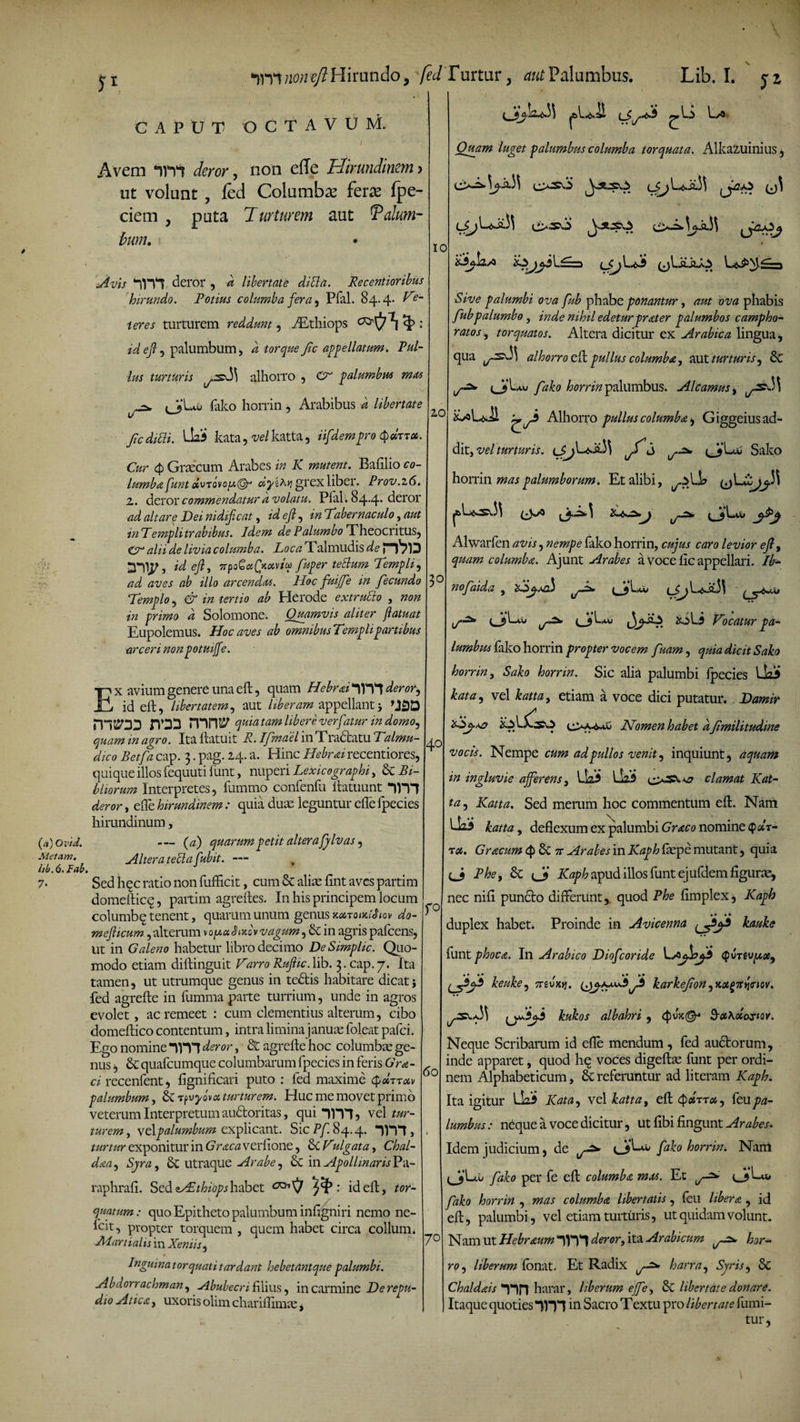 51
דרור non est Hirundo, sed Turtur, aut Palumbus. Lib. I. 52
CAPUT OCTAVUM.
Avem דרור deror, non esse Hirundinem,
ut volunt, sed Columbæ feræ spe-
ciem, puta Turturem aut Palum-
bum.
Avis דרור deror, a libertate dicta. Recentioribus
hirundo. Potius columba fera, Psal. 84.4. Ve-
teres turturem reddunt, Æthiops
id est, palumbum, a torque sic appellatum. Pul-
lus turturis الحر alhorro, & palumbus mas
ساق حر sako horrin, Arabibus a libertate
sic dicti. قطا kata, vel katta, iisdem pro φάττα.
Cur φ Græcum Arabes in K mutent. Basilio co-
lumbæ sunt αὐτόνομ@ ἀγέλη grex liber. Prov. 26.
2. deror commendatur a volatu. Psal. 84.4. deror
ad altare Dei nidificat, id est, in Tabernaculo, aut
in Templi trabibus. Idem de Palumbo Theocritus,
& alii de livia columba. Loca Talmudis de כליה
עורב, id est, super tectum Templi,
ad aves ab illo arcendas. Hoc fuisse in secundo
Templo, & in tertio ab Herode extructo, non
in primo a Solomone. Quamvis aliter statuat
Eupolemus. Hoc aves ab omnibus Templi partibus
arceri non potuisse.
Ex avium genere una est, quam Hebræi דרור deror,
id est, libertatem, aut liberam appellant;
quia tam libere versatur in domo,
quam in agro. Ita statuit R. Ismael in Tractatu Talmu-
dico Betsa cap. 3. pag. 24. a. Hinc Hebræi recentiores,
quique illos sequuti sunt, nuperi Lexicographi, & Bi-
bliorum Interpretes, summo consensu statuunt דרור
deror, esse hirundinem: quia duæ leguntur esse species
hirundinum,
(a) Ovid. — (a) quarum petit altera sylvas,
Metam. Altera tecta subit. —
lib. 6. Fab.
7. Sed hęc ratio non sufficit, cum & aliæ sint aves partim
domesticę, partim agrestes. In his principem locum
columbę tenent, quarum unum genus κατοικίδιον do-
mesticum, alterum νομαδικὸν vagum, & in agris pascens,
ut in Galeno habetur libro decimo De Simplic. Quo-
modo etiam distinguit Varro Rustic. lib. 3. cap. 7. Ita
tamen, ut utrumque genus in tectis habitare dicat;
sed agreste in summa parte turrium, unde in agros
evolet, ac remeet : cum clementius alterum, cibo
domestico contentum, intra limina januæ soleat pasci.
Ego nomine דרור deror, & agreste hoc columbæ ge-
nus, & quæcumque columbarum species in feris Græ-
ci recensent, significari puto : sed maxime φάτταν
palumbum, & τρυγόνα turturem. Huc me movet primò
veterum Interpretum auctoritas, qui דרור, vel tur-
turem, vel palumbum explicant. Sic Ps. 84.4. דרור,
turtur exponitur in Græca versione, & Vulgata, Chal-
dæa, Syra, & utraque Arabe, & in Apollinaris Pa-
raphrasi. Sed Æthiops habet : id est, tor-
quatum : quo Epitheto palumbum insigniri nemo ne-
scit, propter torquem, quem habet circa collum.
Martialis in Xeniis,
Inguina torquati tardant hebetantque palumbi.
Abdorrachman, Abubecri filius, in carmine De repu-
dio Aticæ, uxoris olim charissimæ,
10
20
30
40
50
60
70
ما ناح قمري الحمام المطوق
Quam luget palumbus columba torquata. Alkazuinius,
ان بيض القماري يجعل تحت الفواخت
وبيض الفواخت يجعل تحت القماري
Sive palumbi ova sub phabe ponantur, aut ova phabis
sub palumbo, inde nihil edetur præter palumbos campho-
ratos, torquatos. Altera dicitur ex Arabica lingua,
qua الحر alhorro est pullus columbæ, aut turturis, &
ساق حر sako horrin palumbus. Alcamus, الحر
فرخ الحمامة Alhorro pullus columbæ, Giggeius ad-
dit, vel turturis. ساق حر ذكر القماري Sako
horrin mas palumborum. Et alibi,
Alwarsen avis, nempe sako horrin, cujus caro levior est,
quam columbæ. Ajunt Arabes à voce sic appellari. Ib-
nosaida,
Vocatur pa-
lumbus sako horrin propter vocem suam, quia dicit Sako
horrin, Sako horrin. Sic alia palumbi species قطا
kata, vel katta, etiam à voce dici putatur. Damir
Nomen habet a similitudine
vocis. Nempe cum ad pullos venit, inquiunt, aquam
in ingluvie afferens, قطا قطا clamat Kat-
ta, Katta. Sed merum hoc commentum est. Nam
قطا katta, deflexum ex palumbi Græco nomine φάτ-
τα. Græcum φ & π Arabes in Kaph sæpe mutant, quia
ف Phe, & ق Kaph apud illos sunt ejusdem figuræ,
nec nisi puncto differunt, quod Phe simplex, Kaph
duplex habet. Proinde in Avicenna قوقي kauke
sunt phocæ. In Arabico Dioscoride φύτευμα,
keuke, πεύκη. karkesion, καρπήσιον.
kukos albahri, φῦκ@ θαλάσσιον.
Neque Scribarum id esse mendum, sed auctorum,
inde apparet, quod hę voces digestæ sunt per ordi-
nem Alphabeticum, & referuntur ad literam Kaph.
Ita igitur قطا Kata, vel katta, est φάττα, seu pa-
lumbus : neque à voce dicitur, ut sibi fingunt Arabes.
Idem judicium, de ساق حر sako horrin. Nam
ساق sako per se est columbæ mas. Et ساق حر
sako horrin, mas columbæ libertatis, seu liberæ, id
est, palumbi, vel etiam turturis, ut quidam volunt.
Nam ut Hebræum דרור deror, ita Arabicum حر hor-
ro, liberum sonat. Et Radix حر harra, Syris, &
Chaldæis חרר harar, liberum esse, & libertate donare.
Itaque quoties דרור in Sacro Textu pro libertate sumi-
tur,